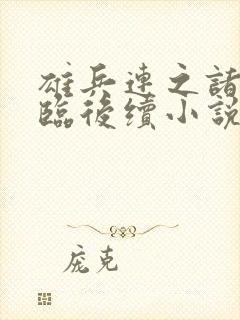 雄兵連之諸
臨後續小說
庞克